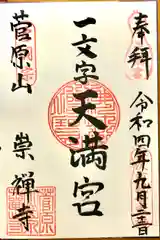 奉拝
令和四年九月二十二日
一文字
天満宮
菅原山
崇禅寺